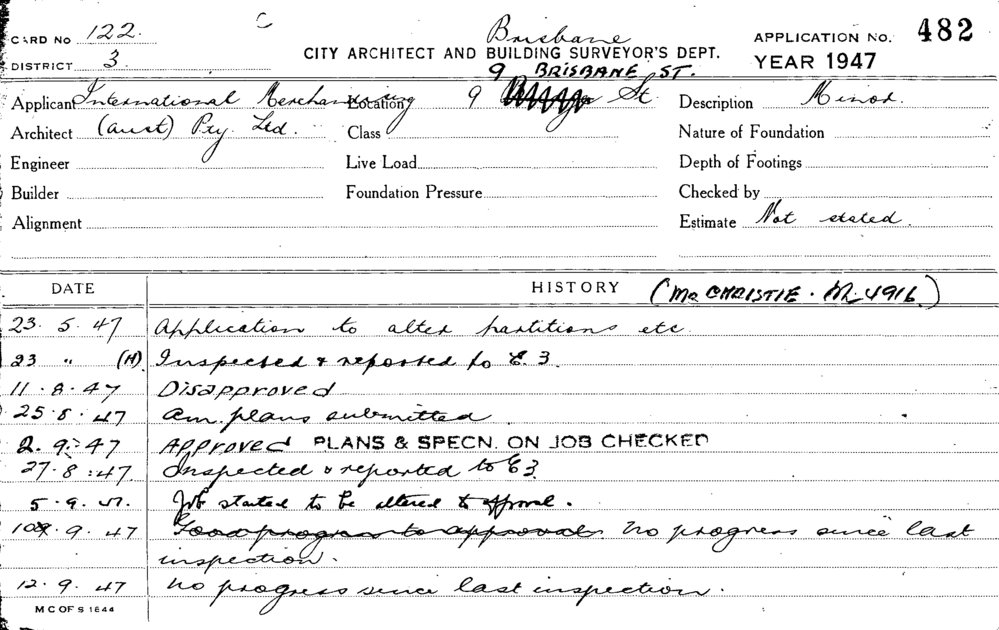 CARD No 122. C Brisbane APPLICATION No. 482
DISTRICT 3 CITY ARCHITECT AND BUILDING SURVEYOR'S DEPT. YEAR 1947
9 BRISBANE ST.
Applicant International Merchandising Location 9 St. Description Minor.
Architect (Aust) Pty. Ltd. Class Nature of Foundation
Engineer Live Load Depth of Footings
Builder Foundation Pressure Checked by
Alignment Estimate Not stated.
DATE HISTORY (Mr CHRISTIE. 4916)
23. 5. 47 Application to alter partitions etc.
23 " (H) Inspected & reported to E.3.
11. 8. 47 Disapproved
25. 8. 47 am. plans submitted
2. 9. 47 Approved PLANS & SPECN. ON JOB CHECKED
27. 8. 47. Inspected & reported to E3.
5. 9. 47. Job started to be altered to approval.
10. 9. 47 Good progress to approval. no progress since last
inspection.
12. 9. 47 no progress since last inspection.
M C OF S 1844